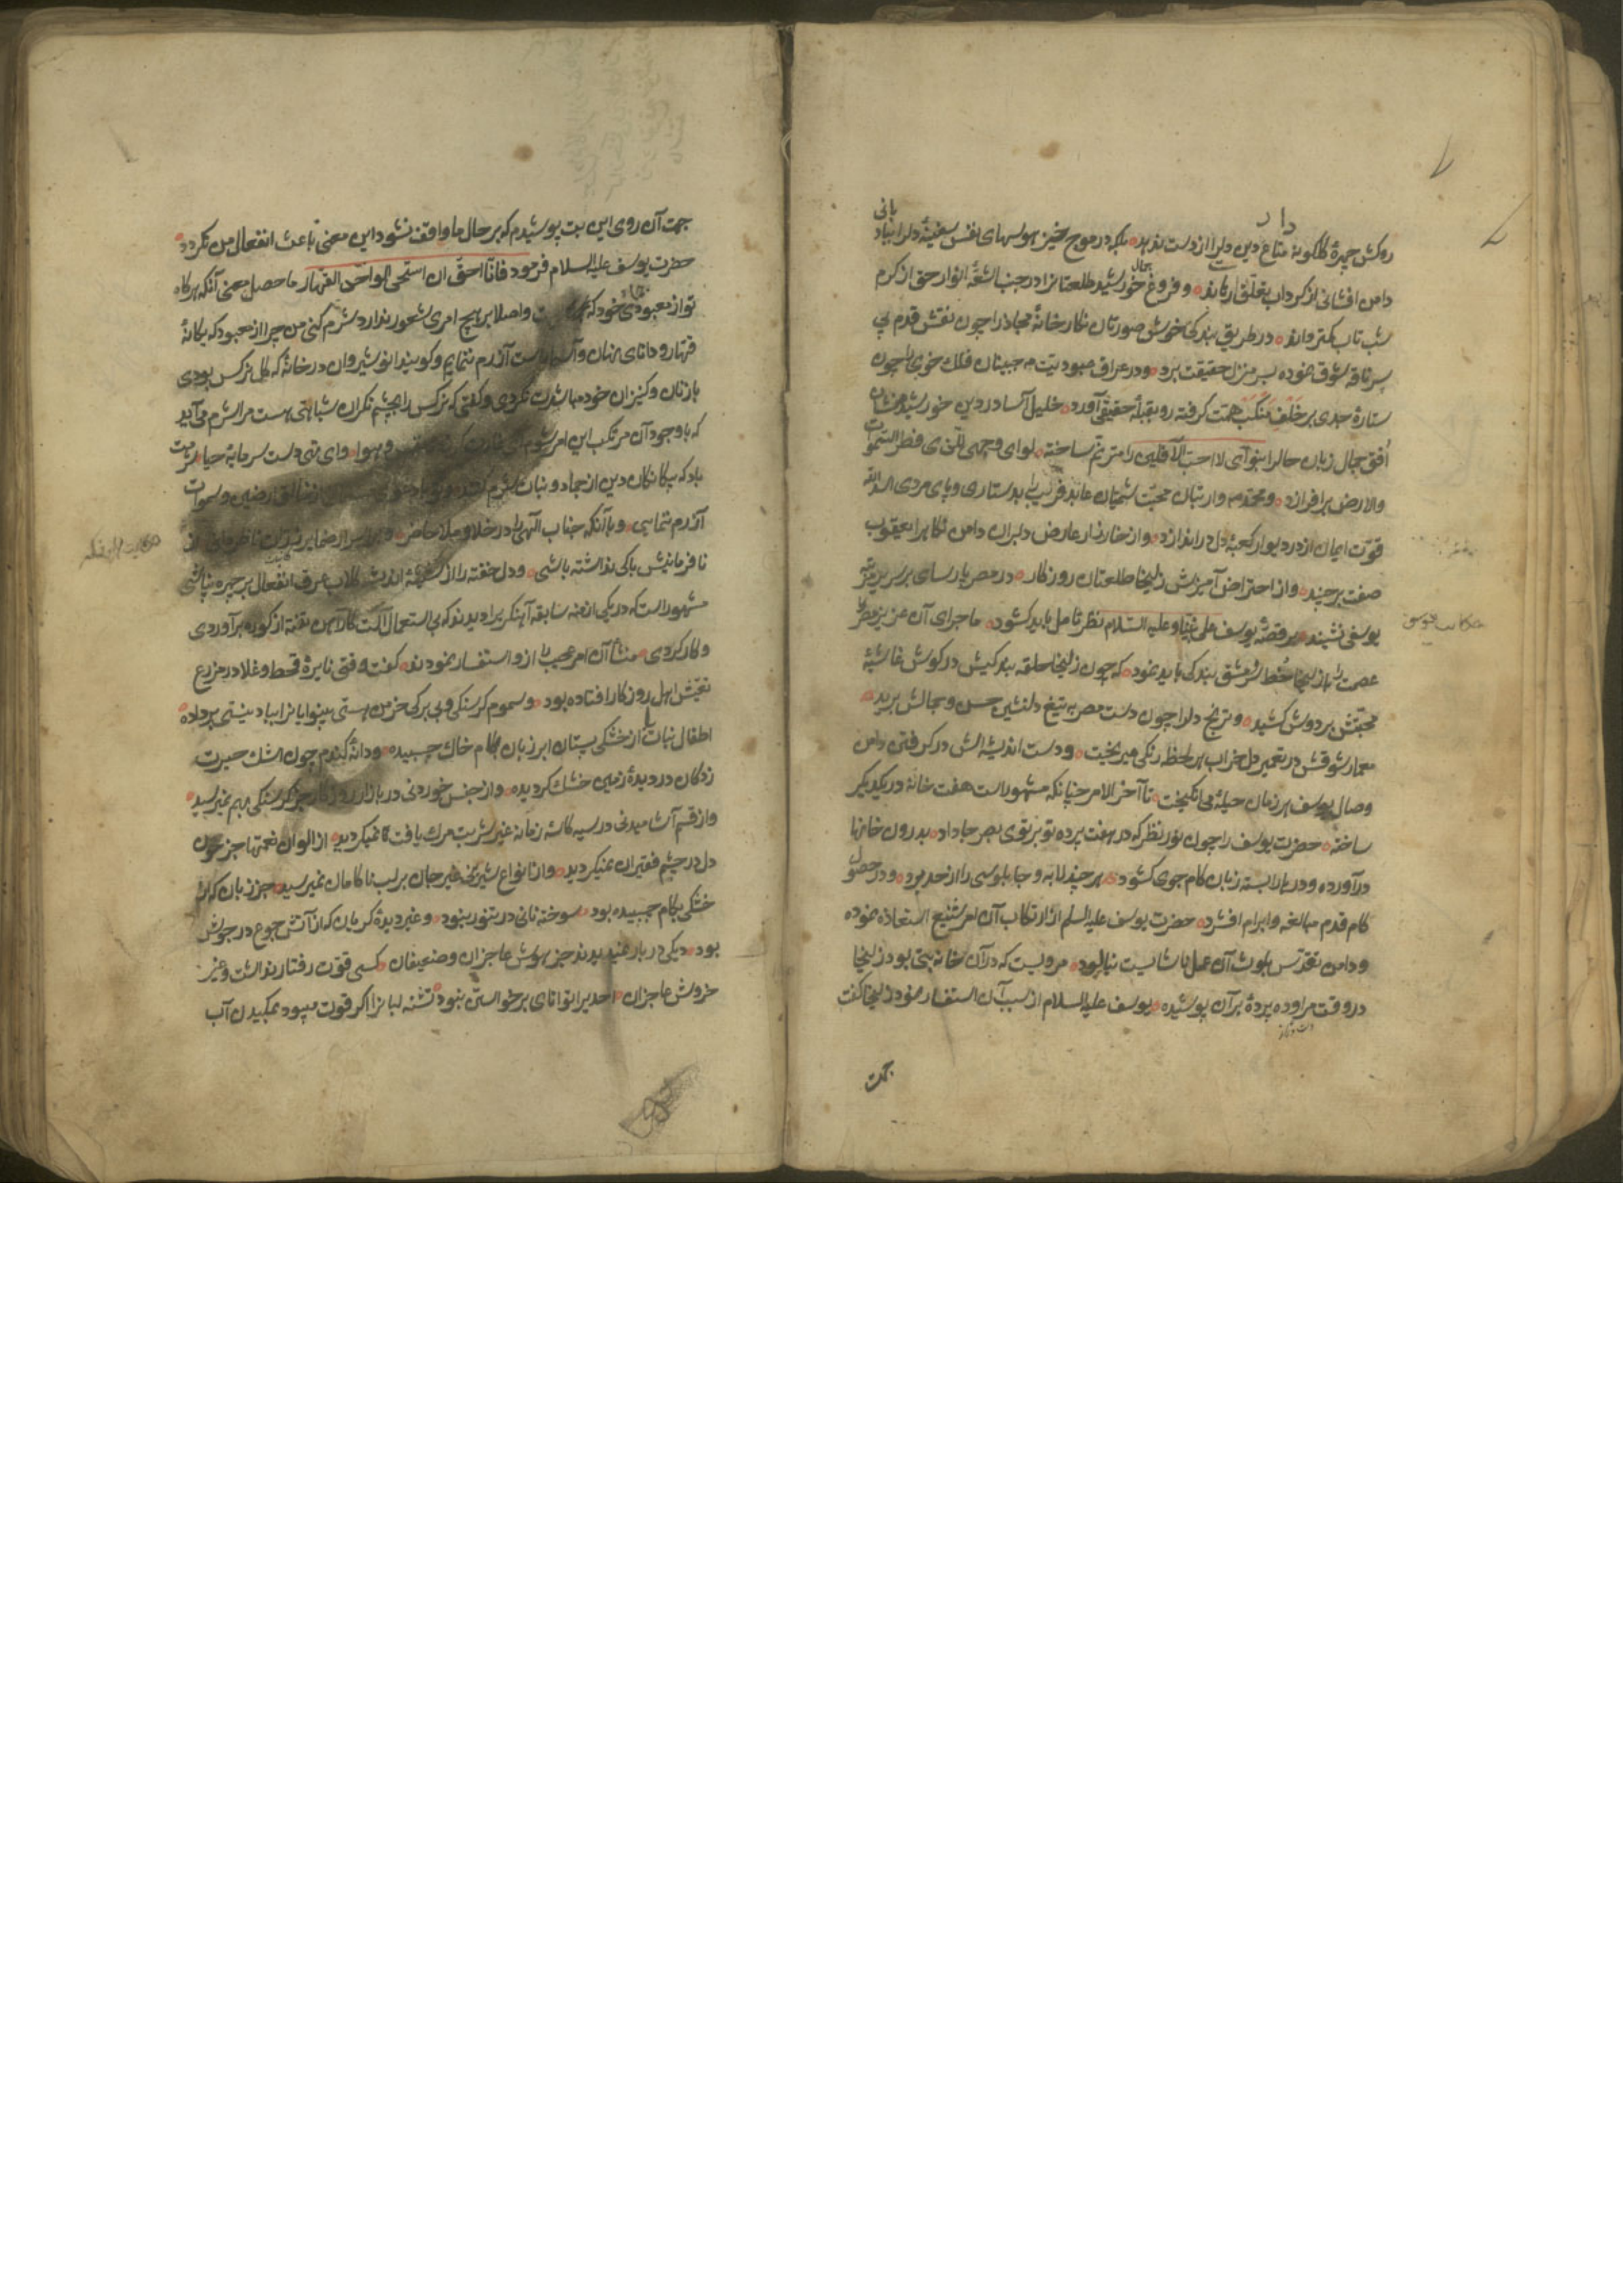 روکش چهرهٔ کلکونهٔ متاع دین دلرا از دست ندهد بلکه در موج خیز هوسهای نفس سفینهٔ دلرا بباد بانی
دامن افشانی از کرداب تعلق رهاند و فروغ جمال خورشید طلعتانرا در جنب اشعّهٔ انوار حق از کرم
شب تاب کمتر داند در طریق بندکی خوش صورتان نکارخانهٔ مجاز را چون نقش قدم پی
سپر ناقهٔ شوق نموده بسر منزل حقیقت برد و در عراق عبودیت مه جبینان فلک خوبی را چون
ستارهٔ جدی بر خلف منکب همّت کرفته رو بقبلهٔ حقیقی آورد خلیل آسا در دین خورشید منشان
اُفق جمال زبان حالرا بنوای لا احبّ الآفلین مترنّم ساخته لوای وجهی للّذی فطر السّموات
والارض برافرازد و محمّد وار بتان محبّت شمیّان عابد فریب را بدستاری و پای مردی اسد اللّه
قوّت ایمان از در دیوار کعبهٔ دل در اندازد و از خارزار عارض دلبران دامن نکاه را یعقوب
صفت برچیند و از احتراض آمیزش زلیخا طلعتان روزکار در مصر پارسای بر سریر
یوسفی نشیند بر قصهٔ یوسف علی نبیّنا و علیه السّلام نظر تامل باید کشود ماجرای آن عزیز مصر
عصمت را با زلیخا خط سر مشق بندکی باید نمود که چون زلیخا حلقه بندکیش در کوش غاشیهٔ
محبّتش بر دوش کشید و ترنج دلرا چون دست مصریه تیغ دلنشین حسن و جمالش برید
معمار شوقش در تعمیر دل خراب هر لحظه رنکی میریخت و دست اندیشه اش در کرفتن دامن
وصال یوسف هر زمان حیلهٔ می انکیخت تا آخر الامر چنانکه مشهور است هفت خانهٔ در یکدیکر
ساخته حضرت یوسف را چون نور نظر که در هفت پرده تو بر توی بصر جا داد بدرون خانها
درآورده و درها را بسته زبان کام جوی کشود هر چند لابه و چابلوسی را از حد برد و در حصول
کام قدم مبالغه و ابرام افشرد حضرت یوسف علیه السلم از ارتکاب آن امر شنیع استعاذه نموده
و دامن تقدّس بلوث آن عمل ناشایست نیالود مرویست که در آن خانه بتی بود زلیخا
در وقت مراوده پردهٔ بر آن پوشیده یوسف علیه السلام از سبب آن استفسار نمود زلیخا کفت
جهت
جهت آن روی این بت پوشیدم که بر حال ما واقف نشود این معنی باعث انفعال من نکردد
حضرت یوسف علیه السلام فرمود فانا احقّ ان استحی الواحد القهار ما حصل معنی آنکه هرکاه
تو از معبودی خود که و اصلا بر هیچ امری شعور ندارد شرم کنی من چرا از معبود که یکانهٔ
قهار و دانای نهان و آشکار است آزرم ننمایم و کویند انوشیروان در خانهٔ که کل نرکس بودی
با زنان و کنیزان خود مباشرت نکردی و کفتی که نرکس را بچشم نکران شباهتی هست مرا شرم می آید
که با وجود آن مرتکب این امر شوم ای نفس و هوا و ای تهی دست سرمایهٔ حیا شرمت
باد که بیکانکان دین از جماد و نبات شرم کنند و تو از خالق ارضین و سموات
آزرم ننمایی و با آنکه جناب الهی را در خلا و ملا حاضر و بر اسرار ضمایر
نافرمانیش باکی نداشته باشی و دل خفته را از اندیشه کلاب عرق انفعال بر چهره نپاشی
مشهور است که در یکی از منه سابقه آهنکریرا دیدند که بی استعمال آلت کاز آهن تفته از کوره بر آوردی
و کار کردی منشأ آن امر عجیب را ازو استفسار نمودند کفت وقتی نایرهٔ قحط و غلا در مزرع
تعیّش اهل روزکار افتاده بود و سموم کرسنکی و بی برکی خرمن هستی بینوایانرا بباد نیستی برداده
اطفال نبات را از خشکی پستان ابر زبان بکام خاک چسبیده و دانهٔ کندم چون اشک حسرت
زدکان در دیدهٔ زمین خشک کردیده و از جنس خوردنی در بازار روزکار جز کرسنکی بهم نمیرسید
و از قسم آشامیدنی در سیه کاسهٔ زمانه غیر شربت مرک یافت نمیکردید از الوان نعمتها جز خون
دل در چشم فقیران نمیکردید و از انواع شیرینی غیر جان بر لب ناکامان نمیرسید جز زبان که از
خشکی بکام چسبیده بود سوخته نانی در تنور نبود و غیر دیدهٔ کریان که از آتش جوع در جوش
بود دیکی در بار عنید بدند جز هوش عاجزان و ضعیفان کسی قوّت رفتار نداشت و غیر
خروش عاجزان احدیرا توانای برخواستن نبود تشنه لبانرا اکر قوت میبود بمکیدن آب